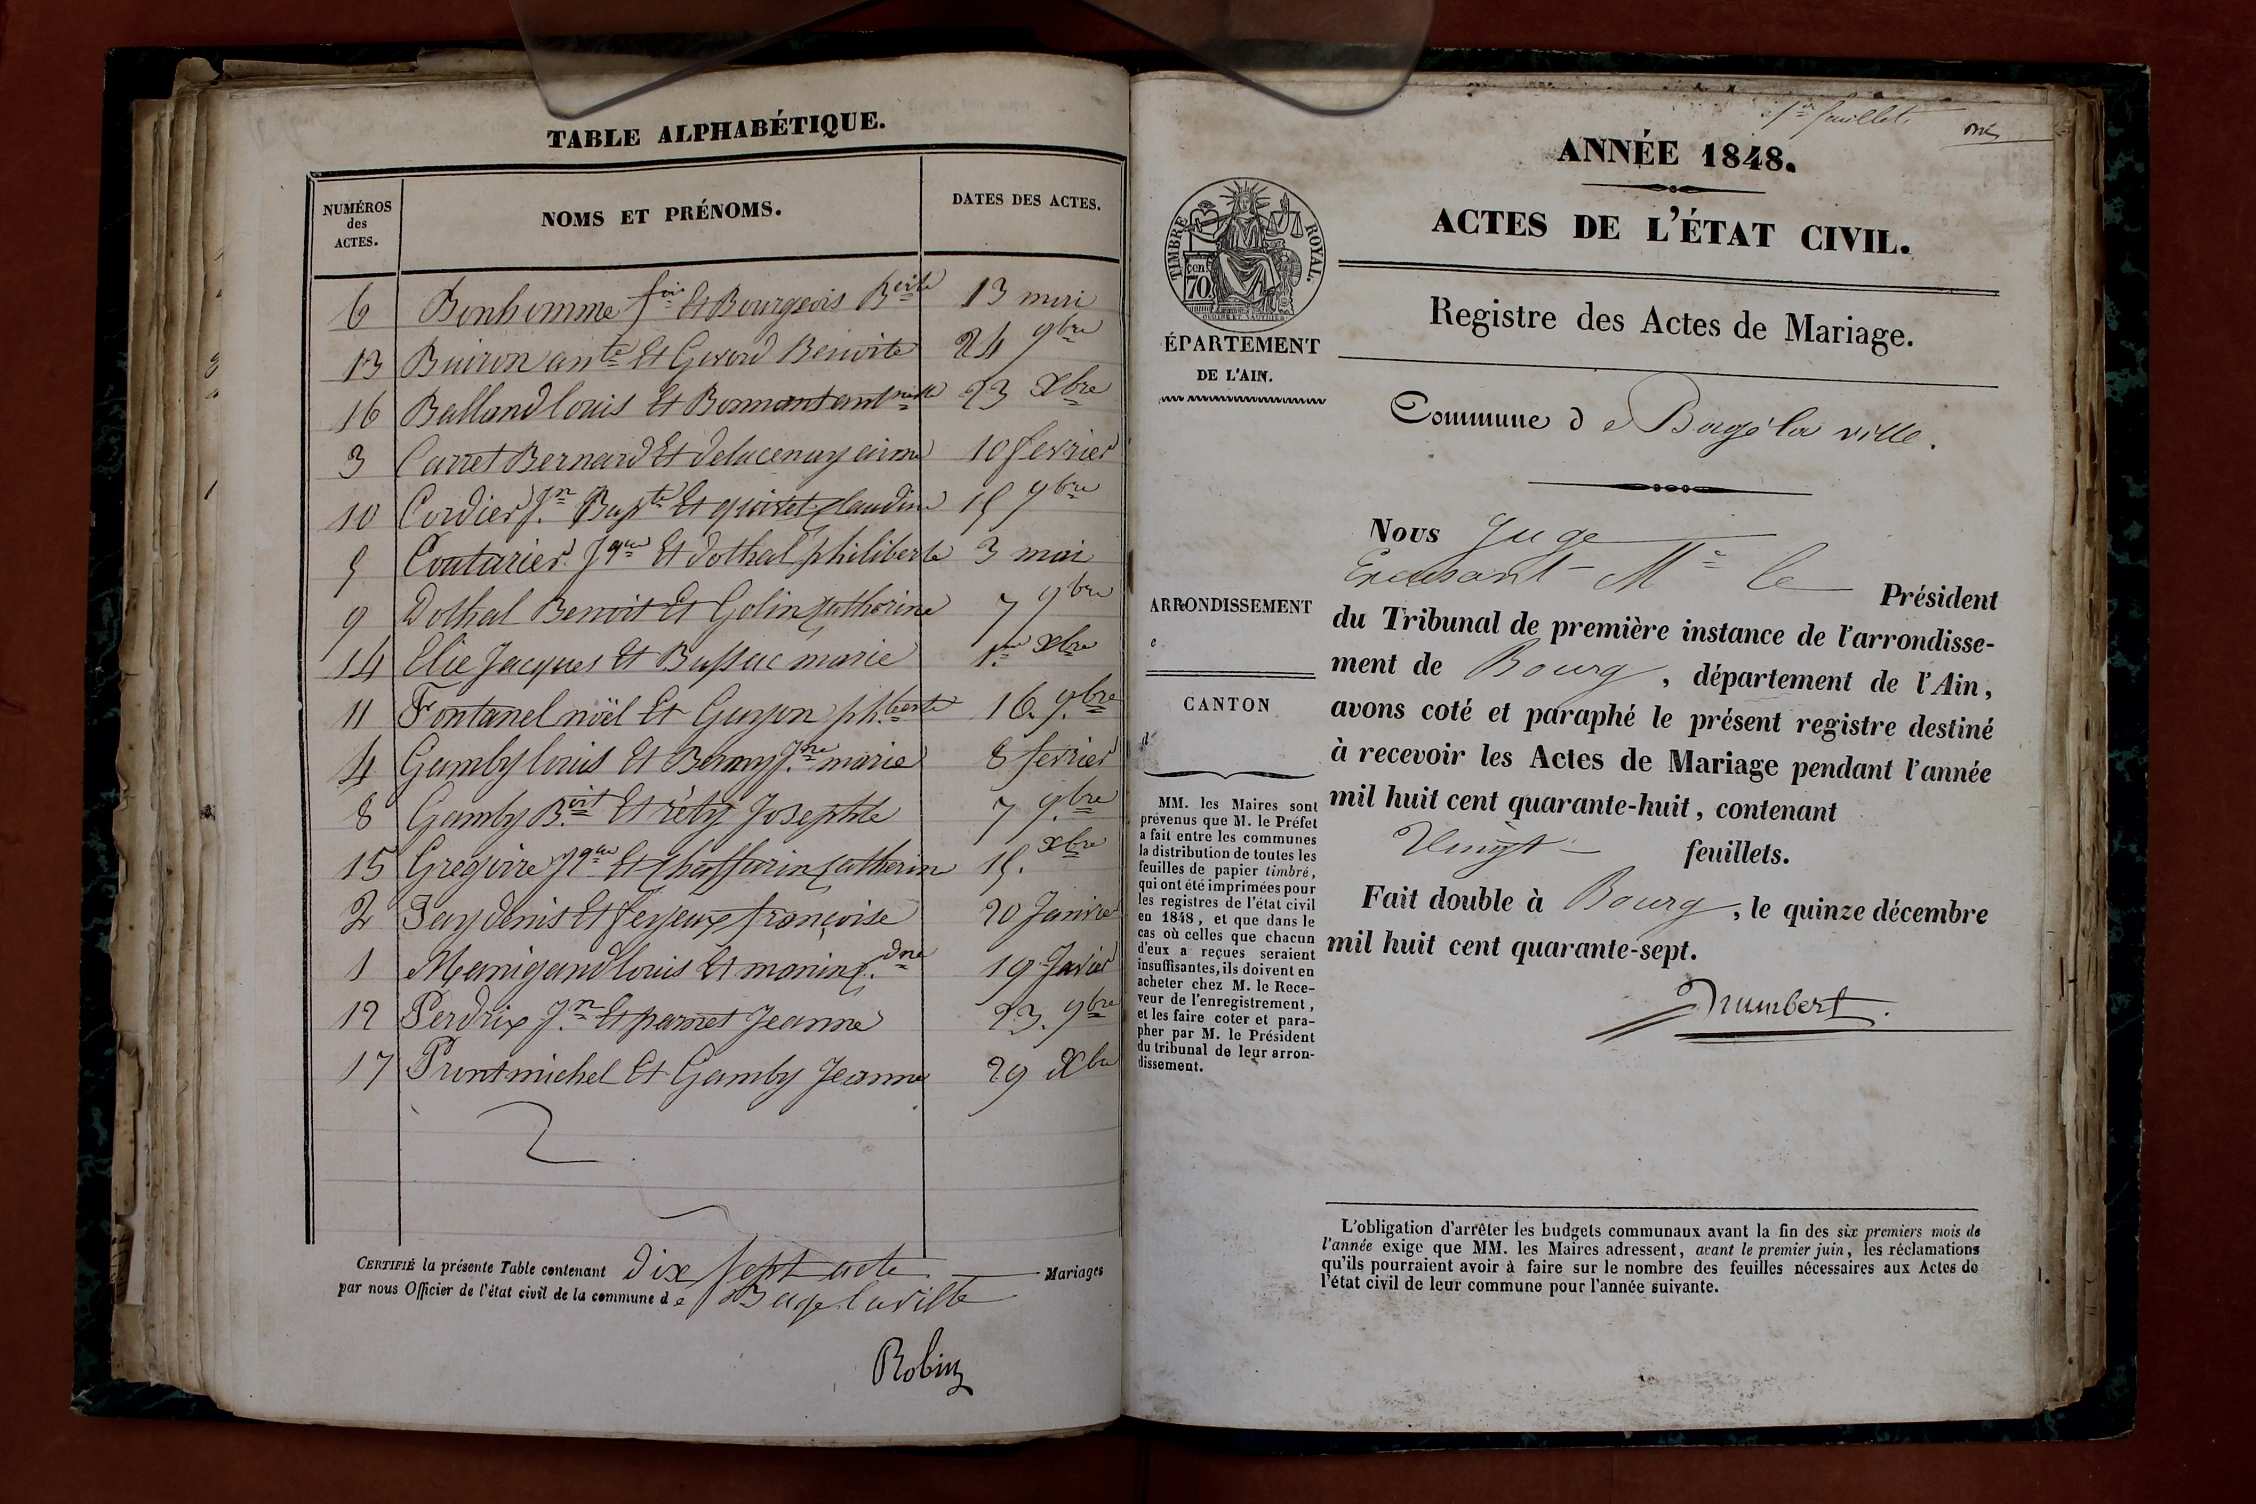 TABLE ALPHABÉTIQUE.
NUMÉROS des ACTES. NOMS ET PRÉNOMS. DATES DES ACTES.
6 Bonhomme fois Et Bourgeois Boite 13 mai
13 Buiron ante Et Gerard Benoite 24 9bre
16 Balland louis Et Bonmant antnette 23 Xbre
3 Carret Bernard Et delacenay aime 10 fevrier
10 Cordier Jn Bapte Et guivet Claudine 15 9bre
5 Coutarier Jque Et dothal philiberte 3 mai
9 Dothal Benoit Et Golin Catherine 7 9bre
14 Elie Jacques Et Bussuc marie 1er Xbre
11 Fontanel noël Et Guyon ph.berte 16. 9.bre
4 Gamby louis Et Beramy J.ne marie 8 fevrier
8 Gamby B.oit Et réty Josephte 7 9.bre
15 Gregoire Jque Et Chaffurin Catherine 15. Xbre
2 Jay denis Et feyeux françoise 20 Janvier
1 Manigand louis Et monin C.dne 19 Javier
12 Perdrix J.n Et pamet Jeanne 23. 9bre
17 Pront michel Et Gamby Jeanne 29 Xbre
CERTIFIÉ la présente Table contenant Dix Sept acte Mariages
par nous Officier de l'état civil de la commune de Bage la ville
Robin
1er feuillet.
ANNÉE 1848.
ACTES DE L'ÉTAT CIVIL.
TIMBRE ROYAL.
cen 70
Registre des Actes de Mariage.
ÉPARTEMENT
DE L'AIN.
Commune de Bagé la ville.
Nous Juge
Excusant Mr le Président
du Tribunal de première instance de l'arrondisse-
ment de Bourg, département de l'Ain,
avons coté et paraphé le présent registre destiné
à recevoir les Actes de Mariage pendant l'année
mil huit cent quarante-huit, contenant
Vingt feuillets.
Fait double à Bourg, le quinze décembre
mil huit cent quarante-sept.
ARRONDISSEMENT
CANTON
MM. les Maires sont
prévenus que M. le Préfet
a fait entre les communes
la distribution de toutes les
feuilles de papier timbré,
qui ont été imprimées pour
les registres de l'état civil
en 1848, et que dans le
cas où celles que chacun
d'eux a reçues seraient
insuffisantes, ils doivent en
acheter chez M. le Rece-
veur de l'enregistrement,
et les faire coter et para-
pher par M. le Président
du tribunal de leur arron-
dissement.
L'obligation d'arrêter les budgets communaux avant la fin des six premiers mois de
l'année exige que MM. les Maires adressent, avant le premier juin, les réclamations
qu'ils pourraient avoir à faire sur le nombre des feuilles nécessaires aux Actes de
l'état civil de leur commune pour l'année suivante.